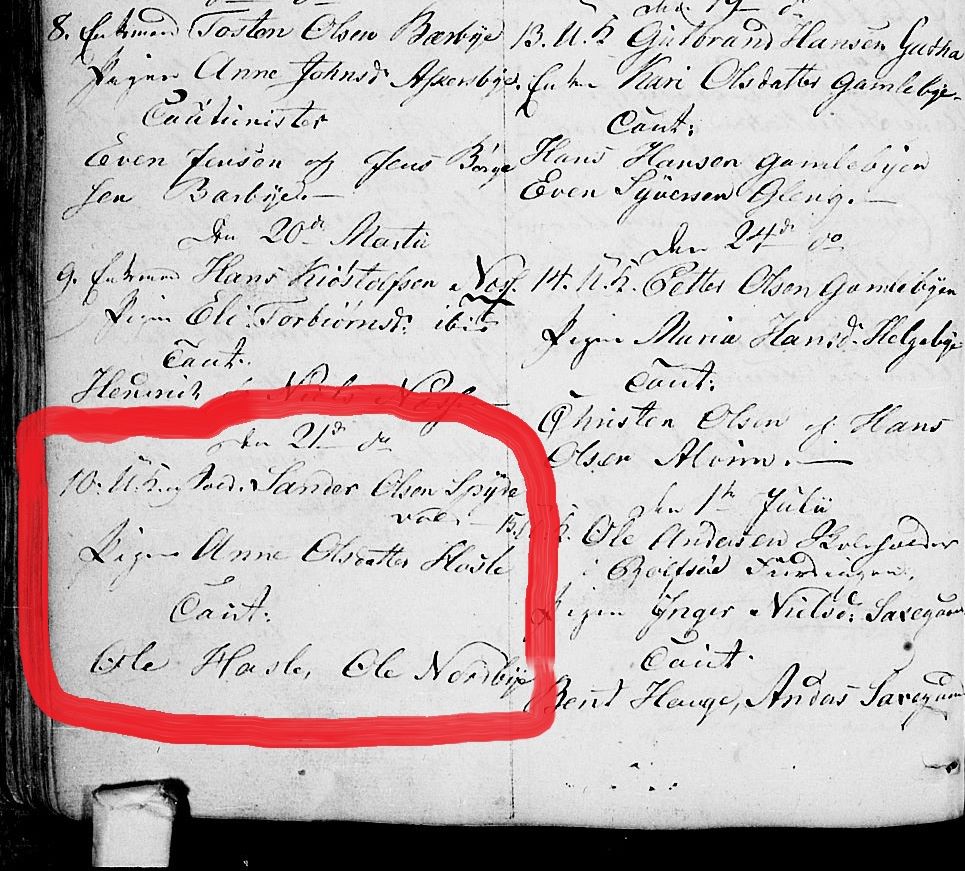 8. Enkemand Tosten Olsen Barbye
Pigen Anne Johnsd. Askersbye.
Cautionister
Even Jensen og Jens Børge
sen Barbye.—
Den 20de Martii
9. Enkemand Hans Kristophsen Nos
Pigen Eli Torbiørnsd. ibid
Caut.
Henrich Niels
den 21de do
10. U.K. og Sold. Sander Olsen Spyde
vold. —
Pigen Anne Olsdatter Hasle
Caut:
Ole Hasle, Ole Nordbye
19 do
13. U.K. Gulbrand Hansen Gudha
Enken Kari Olsdatter Gamlebye.
Caut:
Hans Hansen Gamlebyen
Even Syversen Gleng.—
den 24de do
14. U.K. Petter Olsen Gamlebyen
Pigen Maria Hansd. Helgebye
Caut:
Christen Olsen og Hans
Olsen Alvim.—
den 1te Julii
15. U.K. Ole Andersen
i Rolfsøe
Pigen Inger Nielsd: Saxegaard
Caut:
Bent Hauge, Anders Saxegaard